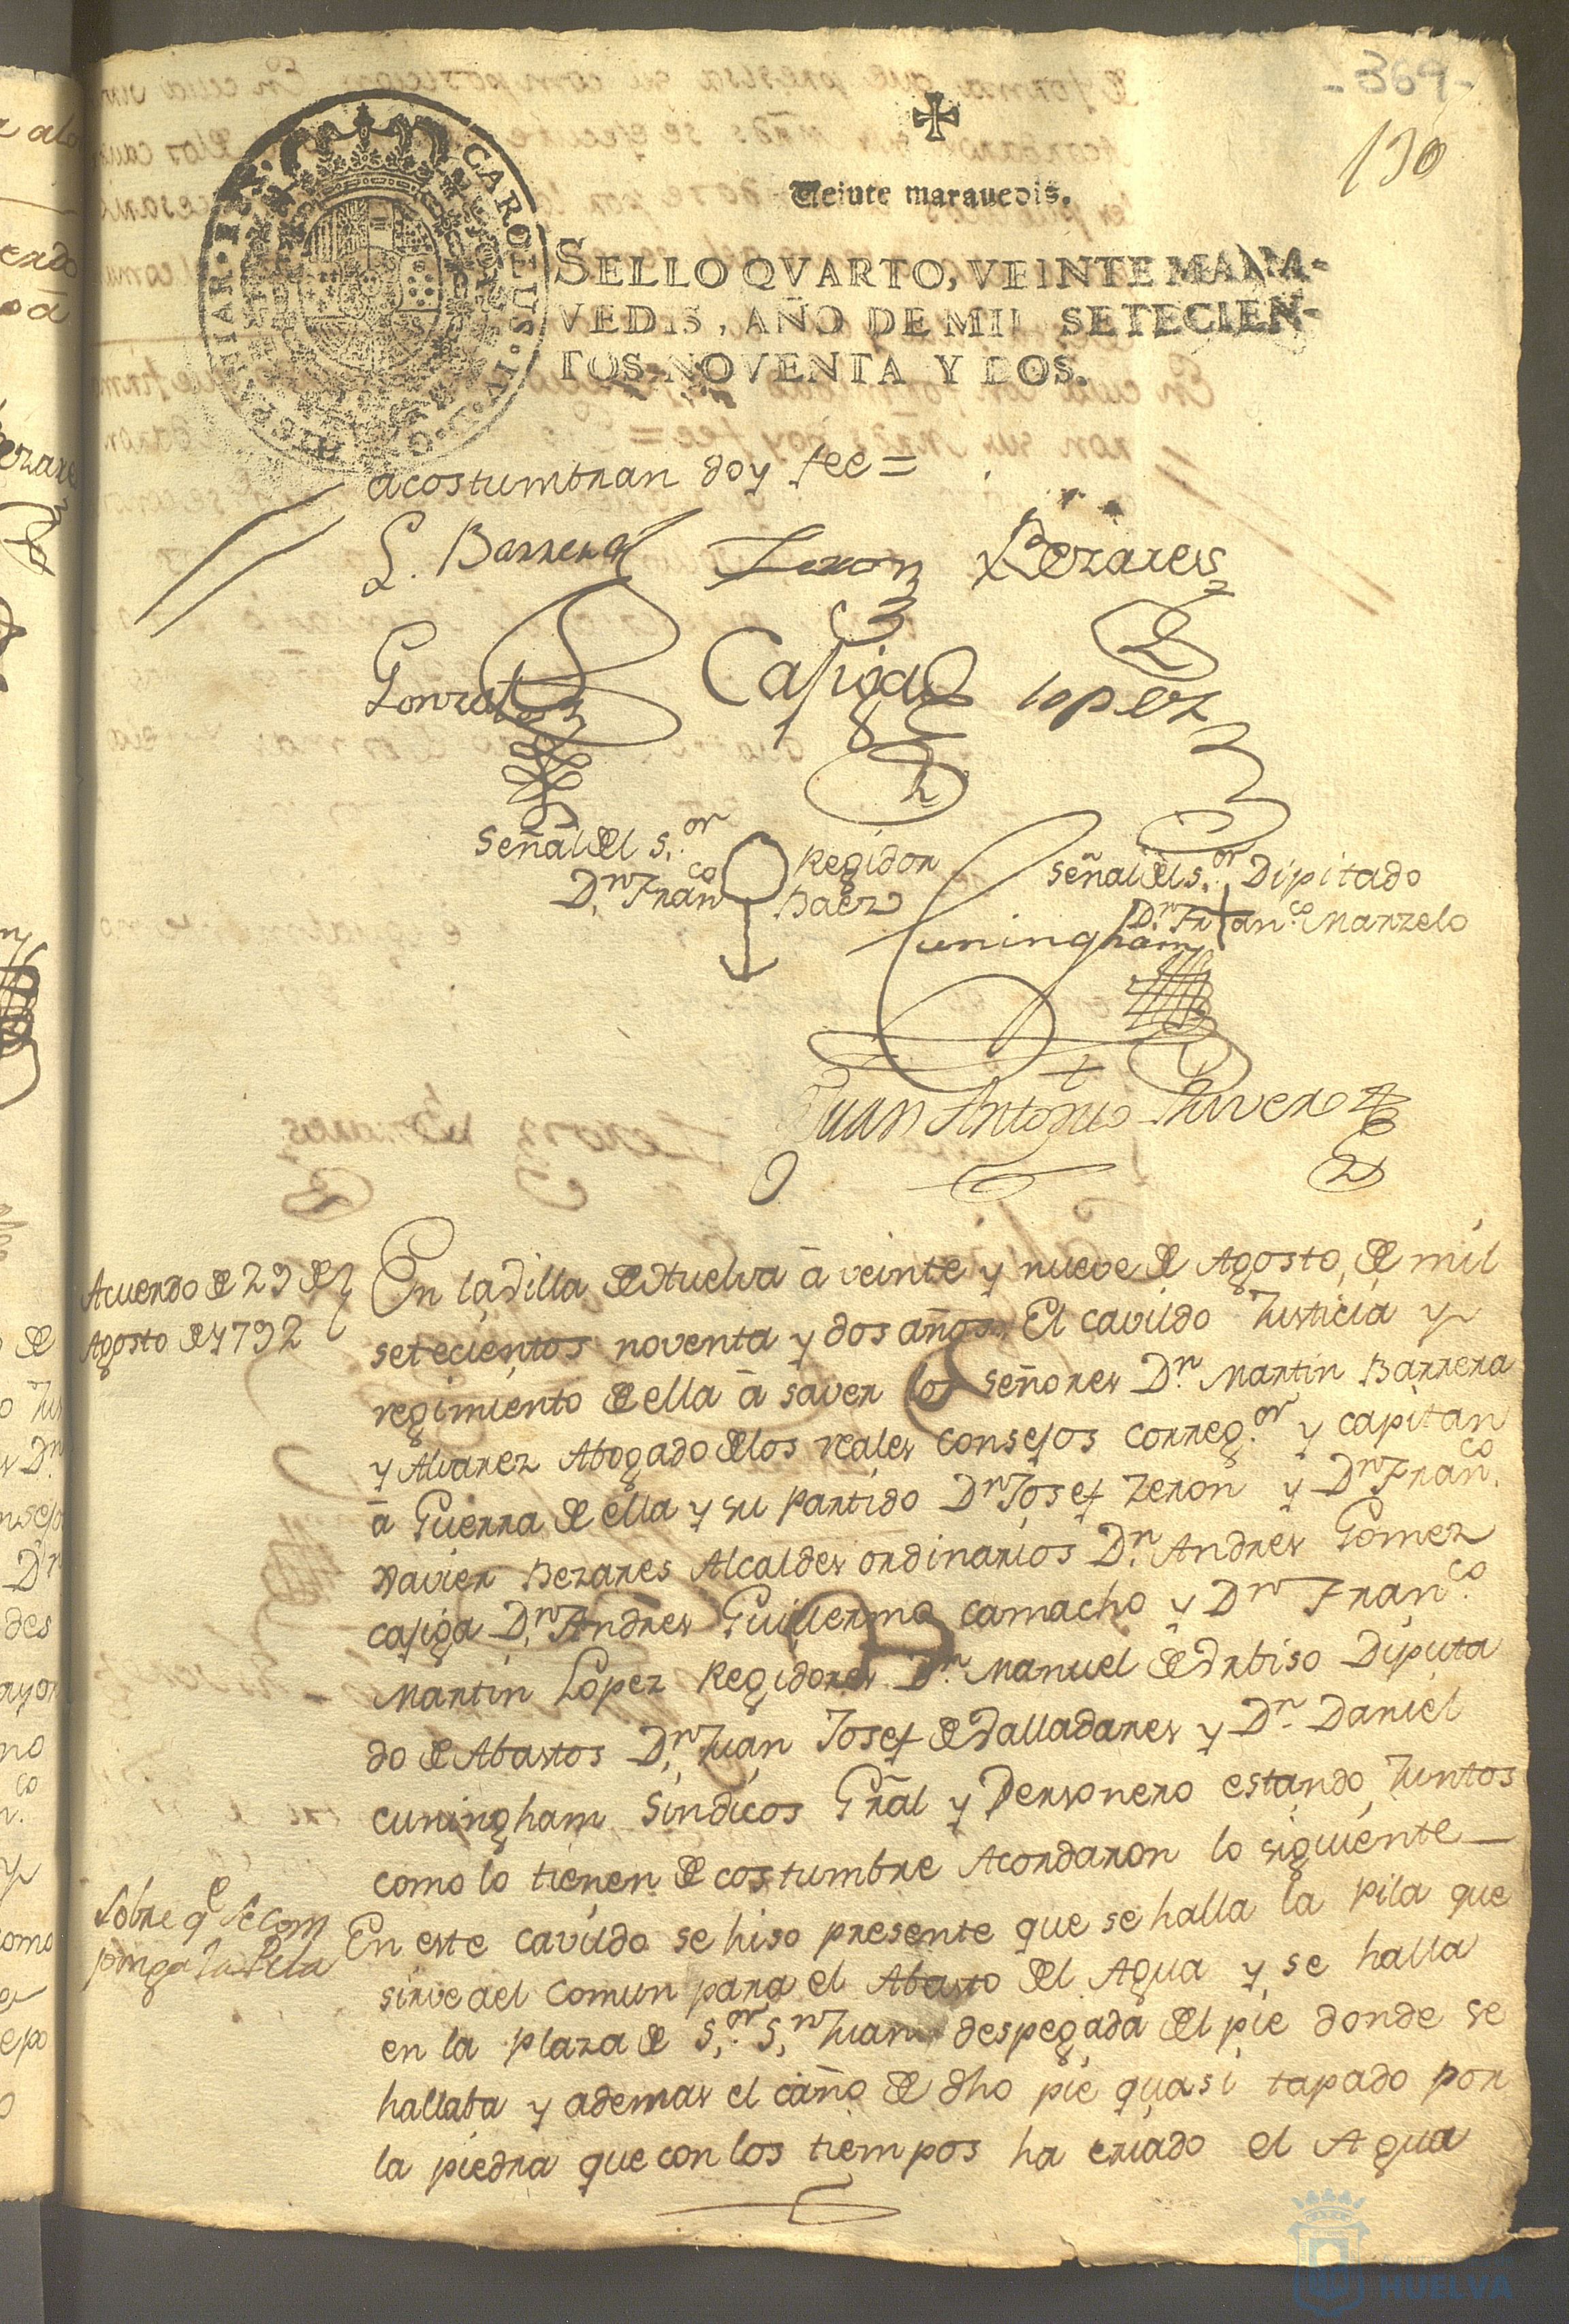 -369-
130
Veinte maravedis.
SELLO QVARTO, VEINTE MARA-
VEDIS, AÑO DE MIL SETECIEN-
TOS NOVENTA Y DOS.
CAROLUS IV D G HISPANIAR
acostumbran doy fee =
L. Barrera Zeron Bezares
Gonzalez Casiga Lopez
Señal del S.or Regidor
D.n Fran.co Baez
Señal del S.or Dipitado
D.n Fran.co Marzelo
Cuningham
Juan Antonio Rivero
Acuerdo de 29 de
Agosto de 1792
En la Villa de Huelva â veinte y nueve de Agosto, de mil
setecientos noventa y dos años El cavildo Justicia y
regimiento de ella â saver los señores D.n Martin Barrera
y Alvarez Abogado de los reales consejos correg.or y capitan
â Guerra de ella y su partido D.n Josef Zeron y D.n Fran.co
Xavier Bezares Alcaldes ordinarios D.n Andres Gomez
casiga D.n Andres Guillermo camacho y D.n Fran.co
Martin Lopez Regidores D.n Manuel de Urbiso Diputa
do de Abastos D.n Juan Josef de Valladares y D.n Daniel
cuningham Sindicos Grãl y Personero estando Juntos
como lo tienen de costumbre Acordaron lo siguiente
Sobre q.e se com
ponga la Pila
En este cavildo se hiso presente que se halla la pila que
sirve ael comun para el Abasto del Agua y se halla
en la plaza de S.or S.n Juan despegada del pie donde se
hallaba y ademas el caño de dho pie quasi tapado por
la piedra que con los tiempos ha criado el Agua
HUELVA